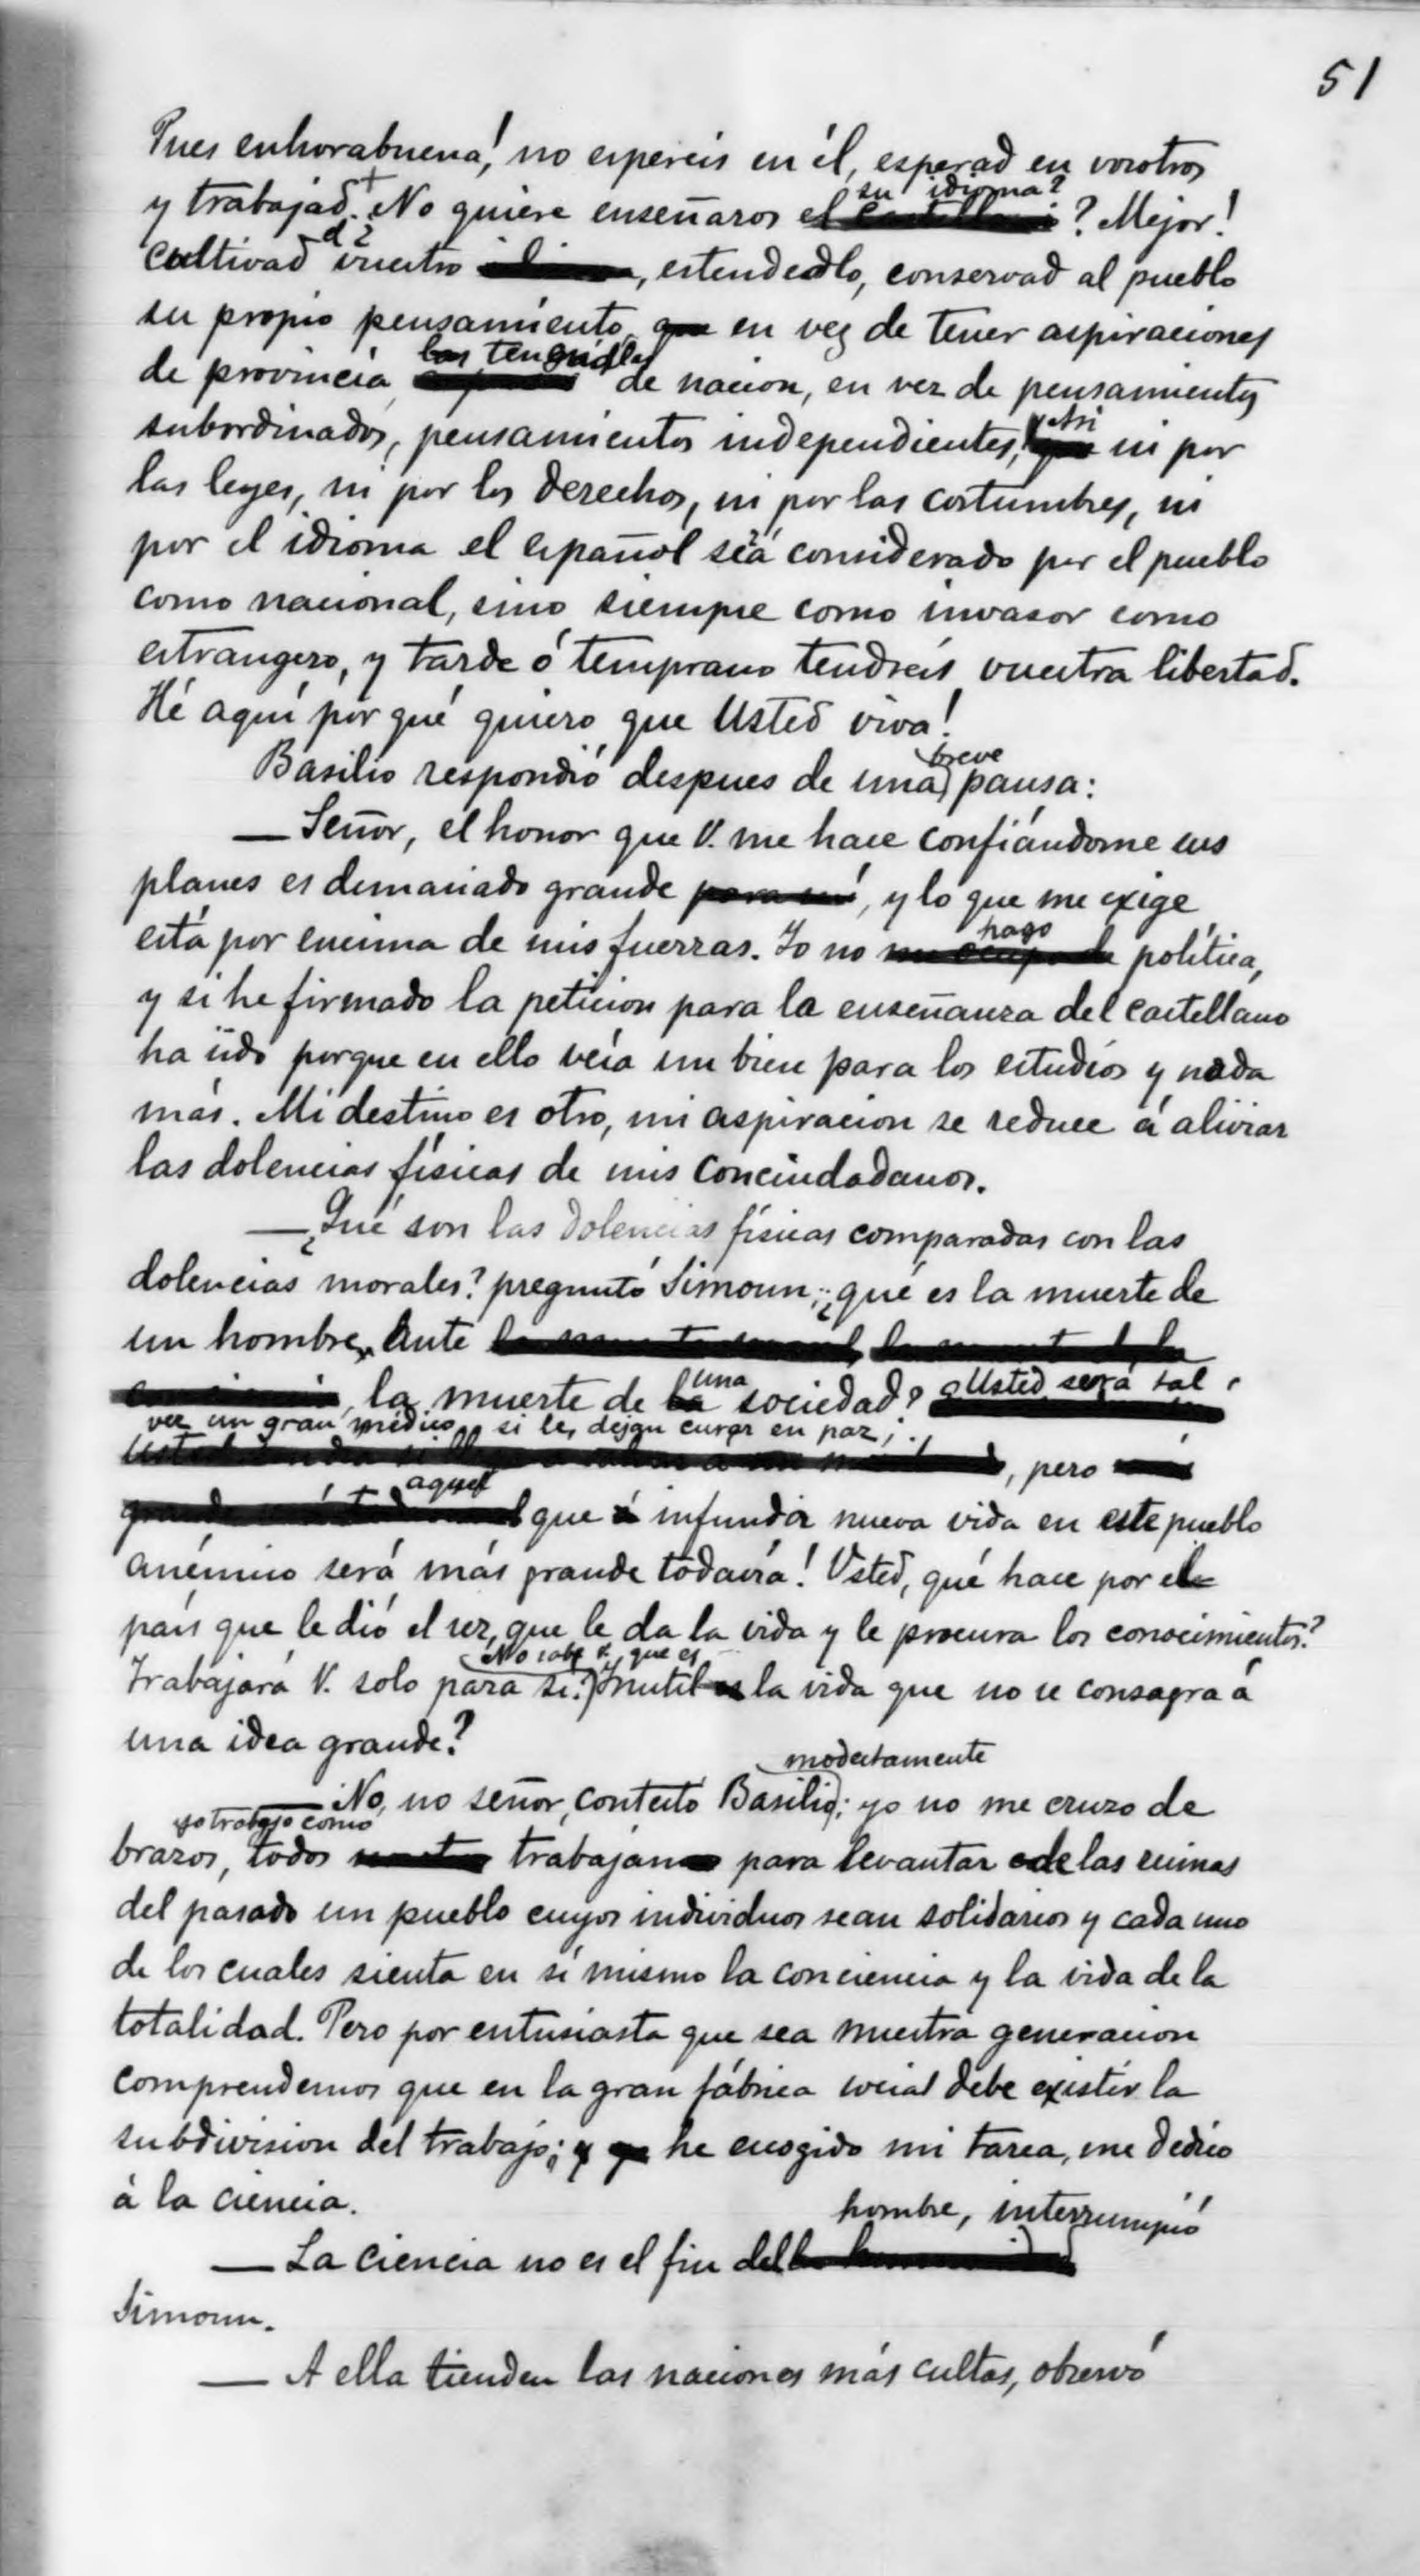 51
Pues enhorabuena! no espereis en él, esperad en vosotros
su idioma?
y trabajad. No quiere enseñaros el ? Mejor!
cultivad vuestro , estendedlo, conservad al pueblo
su propio pensamiento, que en vez de tener aspiraciones
las tengáis
de provincia, de nacion, en vez de pensamientos
y así
subordinados, pensamientos independientes, que ni por
las leyes, ni por los derechos, ni por las costumbres, ni
por el idioma el español sea considerado por el pueblo
como nacional, sino siempre como invasor como
estrangero, y tarde ó temprano tendreis vuestra libertad.
Hé aquí por qué quiero que Usted viva!
breve
Basilio respondió despues de una pausa:
— Señor, el honor que V. me hace confiándome sus
planes es demasiado grande para mí, y lo que me exige
hago
está por encima de mis fuerzas. Yo no me ocupo de política,
y si he firmado la peticion para la enseñanza del castellano
ha sido porque en ello veía un bien para los estudios y nada
más. Mi destino es otro, mi aspiracion se reduce á aliviar
las dolencias físicas de mis conciudadanos.
— ¿Qué son las dolencias físicas comparadas con las
dolencias morales? preguntó Simoun; ¿qué es la muerte de
un hombre ante
una Usted será tal
, la muerte de la sociedad?
vez un gran médico si le dejan curar en paz;
, pero
aquel
que á infundir nueva vida en este pueblo
anémico será más grande todavía! Usted, qué hace por el
país que le dió el ser, que le da la vida y le procura los conocimientos?
No sabe V. que es
Trabajará V. solo para sí? inutil es la vida que no se consagra á
una idea grande?
modestamente
— No, no señor, contestó Basilio; yo no me cruzo de
yo trabajo como
brazos, todos trabajan para levantar de las ruinas
del pasado un pueblo cuyos individuos sean solidarios y cada uno
de los cuales sienta en sí mismo la conciencia y la vida de la
totalidad. Pero por entusiasta que sea nuestra generacion
comprendemos que en la gran fábrica social debe existir la
subdivision del trabajo; y yo he escogido mi tarea, me dedico
á la ciencia.
hombre, interrumpió
— La ciencia no es el fin del
Simoun.
— A ella tienden las naciones más cultas, observó